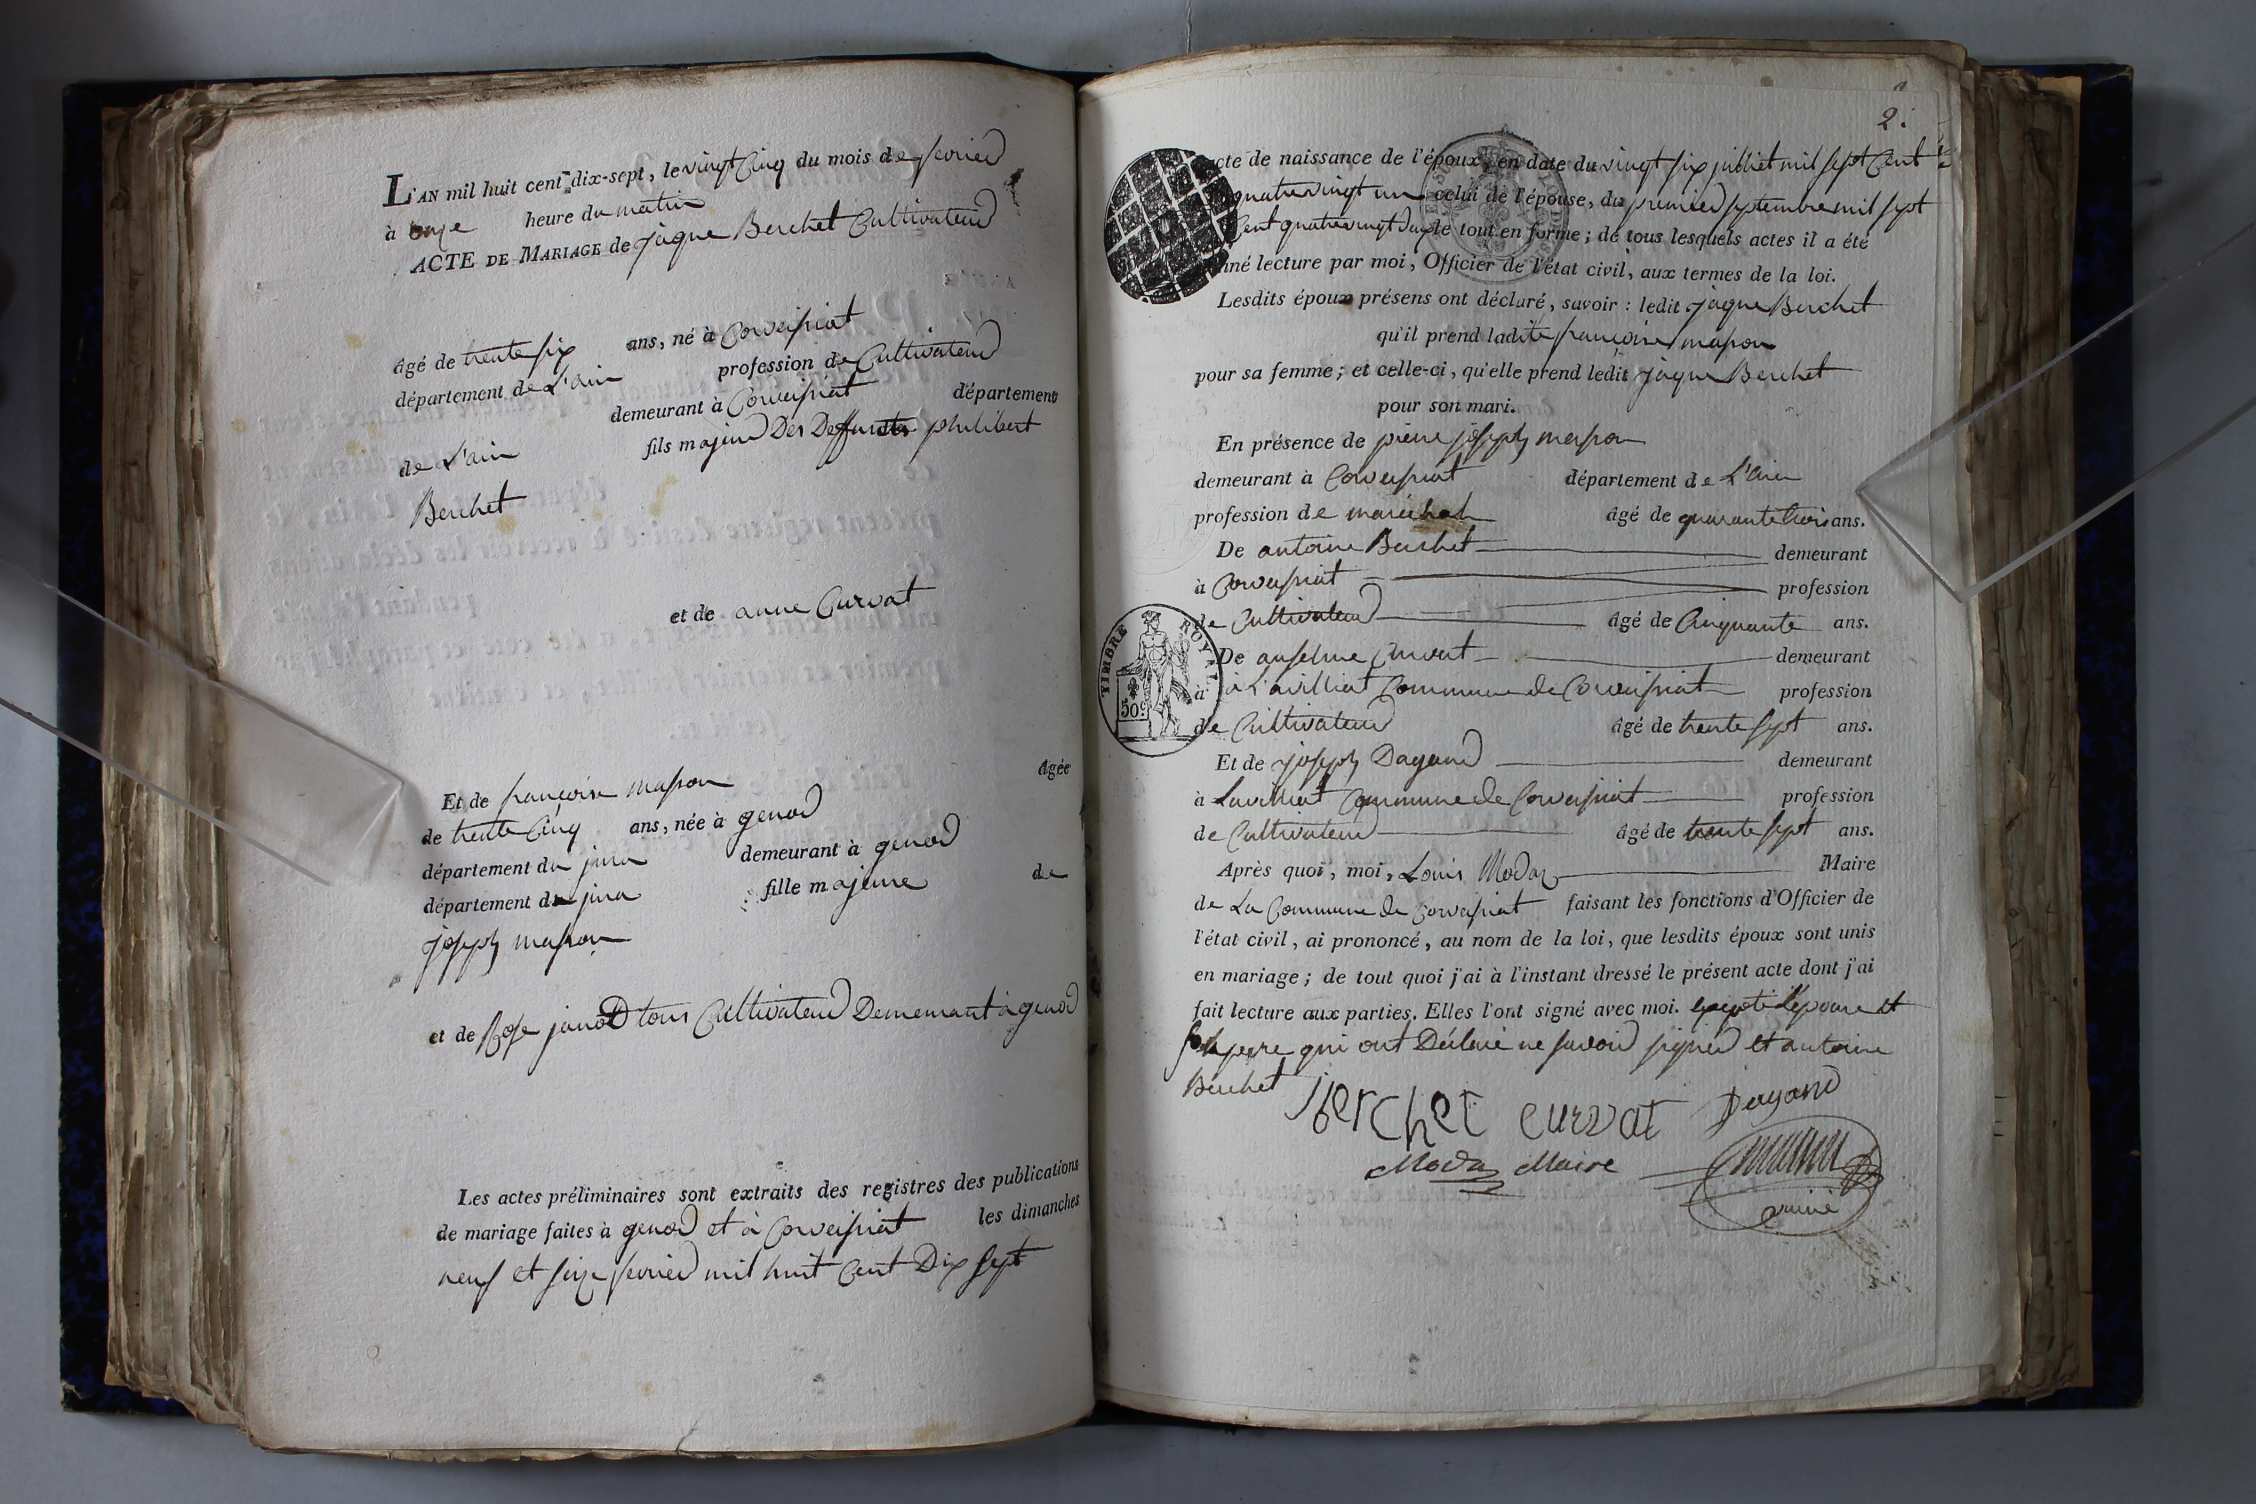 L'AN mil huit cent dix-sept, le vingt Cinq du mois de fevrier
à onze heure du matin
ACTE DE MARIAGE de jaque Berchet Cultivateur
âgé de trente six ans, né à Corveissiat
département de L'ain profession de Cultivateur
demeurant à Corveissiat département
de L'ain fils majeur Des Deffunts philibert
Berchet
et de anne Curvat
Et de françoise masson âgée
de trente Cinq ans, née à genod
département du jura demeurant à genod
département du jura fille majeure de
joseph masson
et de Rose janod tous Cultivateur Demeurant à genod
Les actes préliminaires sont extraits des registres des publications
de mariage faites à genod et à Corveissiat les dimanches
neuf et seize fevrier mil huit Cent Dix Sept
2.
acte de naissance de l'époux, en date du vingt six juilliet mil sept Cent
quatre vingt un celui de l'épouse, du premier septembre mil sept
Cent quatre vingt le tout en forme; de tous lesquels actes il a été
nné lecture par moi, Officier de l'état civil, aux termes de la loi.
Lesdits époux présens ont déclaré, savoir: ledit jaque Berchet
qu'il prend ladite françoise masson
pour sa femme; et celle-ci, qu'elle prend ledit jaque Berchet
pour son mari.
En présence de pierre joseph masson
demeurant à Corveissiat département de L'ain
profession de maréchal âgé de quarante trois ans.
De antoine Berchet demeurant
à Corveissiat profession
de Cultivateur âgé de Cinquante ans.
De anselme Curvat demeurant
à à Lavilliat Commune de Corveissiat profession
de Cultivateur âgé de trente sept ans.
Et de joseph Dagand demeurant
à Lavilliat Commune de Corveissiat profession
de Cultivateur âgé de trente sept ans.
Après quoi, moi, Louis Modas Maire
de La Commune de Corveissiat faisant les fonctions d'Officier de
l'état civil, ai prononcé, au nom de la loi, que lesdits époux sont unis
en mariage; de tout quoi j'ai à l'instant dressé le présent acte dont j'ai
fait lecture aux parties. Elles l'ont signé avec moi. excepté L'épouse et
son pere qui ont Déclaré ne savoir signer et antoine
Berchet
Berchet Curvat Dagand
Modas Maire
TIMBRE ROYAL
50c